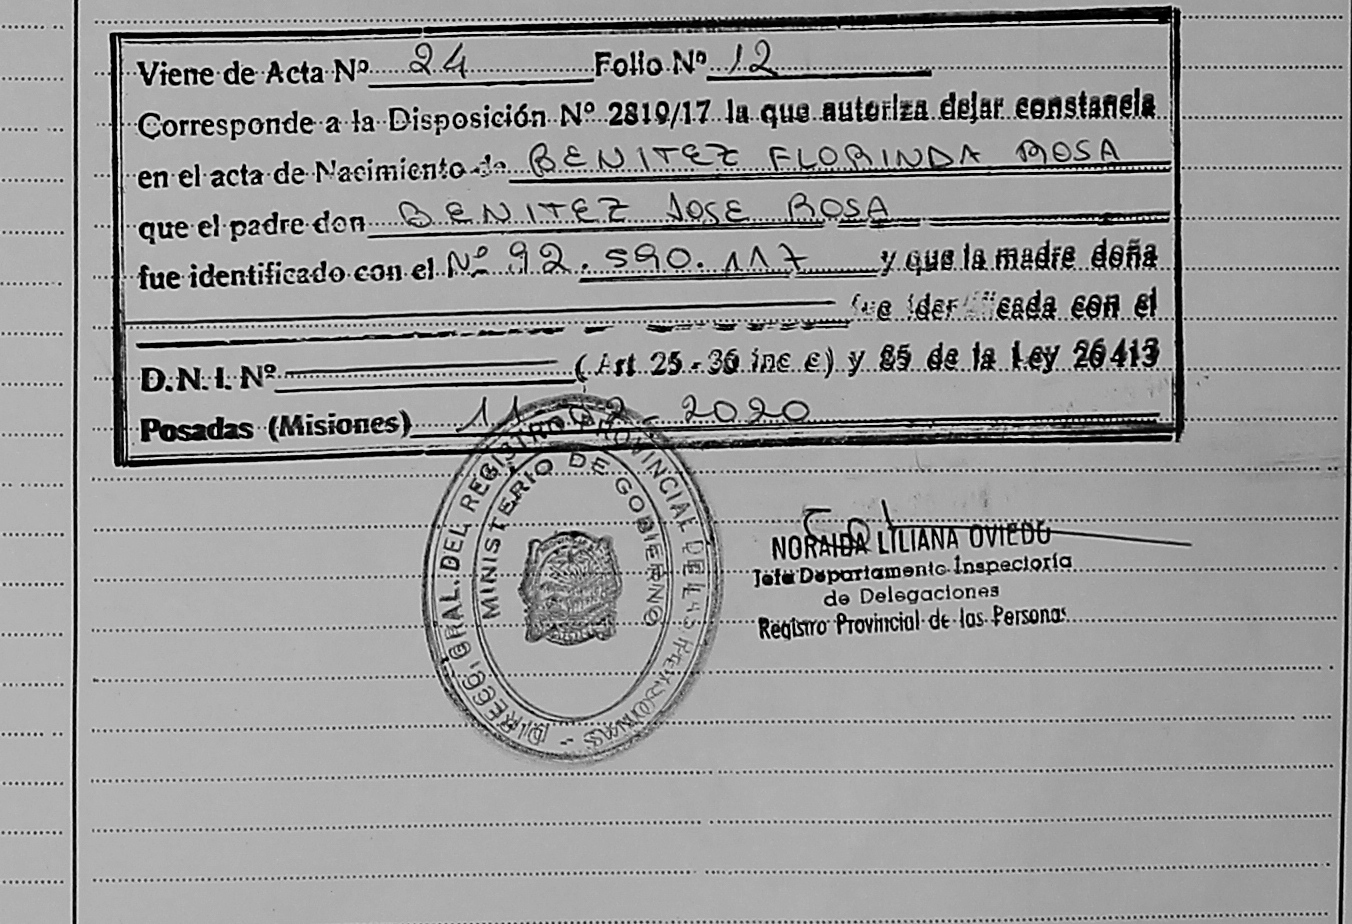 Viene de Acta Nº 24 Folio Nº 12
Corresponde a la Disposición Nº 2819/17 la que autoriza dejar constancia
en el acta de Nacimiento de BENITEZ FLORINDA ROSA
que el padre don BENITEZ JOSE ROSA
fue identificado con el Nº 92.590.117 y que la madre doña
fue identificada con el
D.N.I. Nº (Art. 25 - 36 inc e) y 85 de la Ley 26413
Posadas (Misiones) 11 - 2 - 2020
DIRECC. GRAL. DEL REGISTRO PROVINCIAL DE LAS PERSONAS -
MINISTERIO DE GOBIERNO
NORAIDA LILIANA OVIEDO
Jefa Departamento Inspectoría
de Delegaciones
Registro Provincial de las Personas